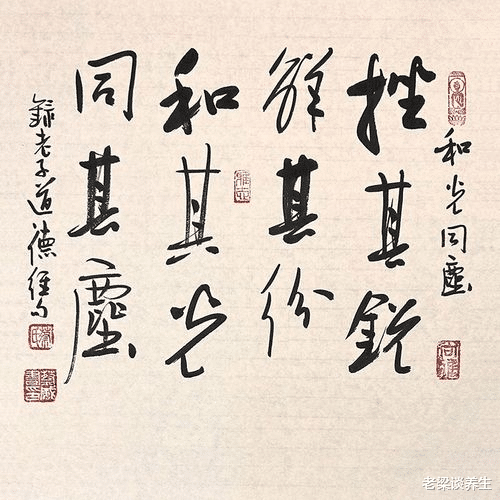 和光同塵
挫其銳
解其份
和其光
同其塵
錄老子道德經句
老梁谈养生